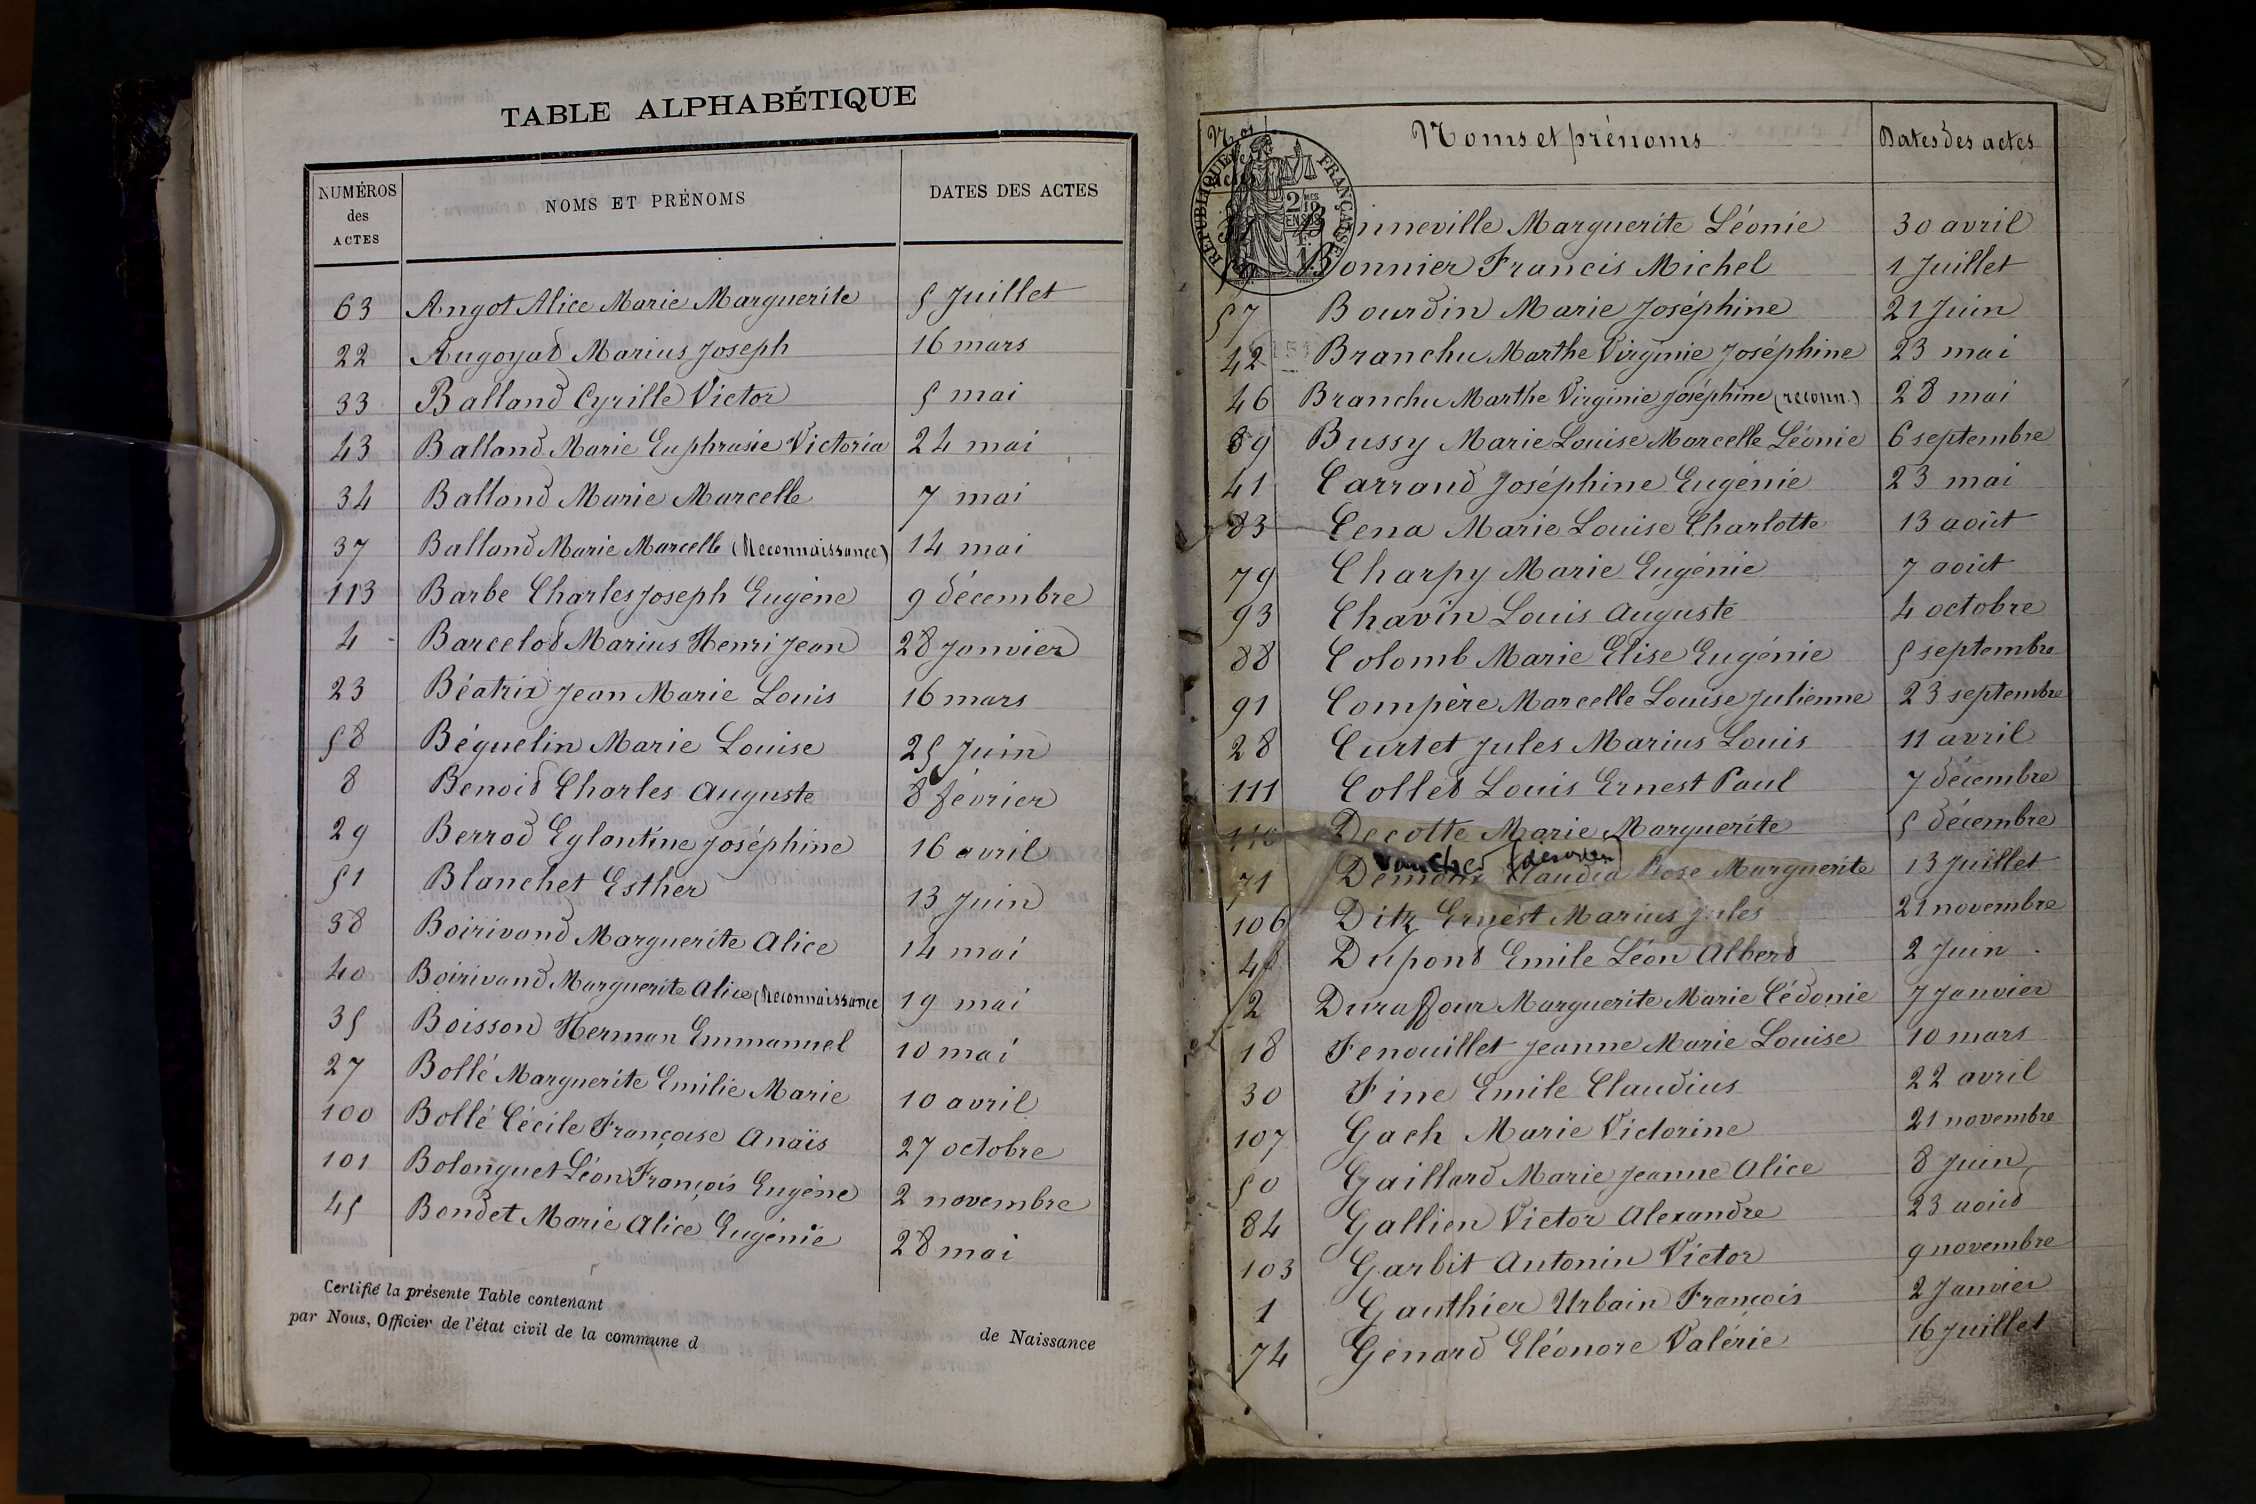 TABLE ALPHABÉTIQUE
NUMÉROS des ACTES NOMS ET PRÉNOMS DATES DES ACTES
63 Angot Alice Marie Marguerite 5 Juillet
22 Augoyat Marius Joseph 16 mars
33 Balland Cyrille Victor 5 mai
43 Balland Marie Euphrasie Victoria 24 mai
34 Balland Marie Marcelle 7 mai
37 Balland Marie Marcelle (Reconnaissance) 14 mai
113 Barbe Charles Joseph Eugène 9 décembre
4 Barcelot Marius Henri Jean 28 Janvier
23 Béatrix Jean Marie Louis 16 mars
58 Béguelin Marie Louise 25 Juin
8 Benoit Charles Auguste 8 février
29 Berrod Eglantine Joséphine 16 avril
51 Blanchet Esther 13 Juin
38 Boirivand Marguerite Alice 14 mai
40 Boirivand Marguerite Alice (Reconnaissance 19 mai
35 Boisson Herman Emmanuel 10 mai
27 Bollé Marguerite Emilie Marie 10 avril
100 Bollé Cécile Françoise Anaïs 27 octobre
101 Bolonguet Léon François Eugène 2 novembre
45 Bondet Marie Alice Eugénie 28 mai
Certifié la présente Table contenant de Naissance
par Nous, Officier de l'état civil de la commune d
Nos Noms et prénoms Dates des actes
RÉPUBLIQUE FRANÇAISE
nneville Marguerite Léonie 30 avril
Bonnier Francis Michel 1 Juillet
57 Bourdin Marie Joséphine 21 Juin
42 Branchu Marthe Virginie Joséphine 23 mai
46 Branchu Marthe Virginie Joséphine (reconn.) 28 mai
89 Bussy Marie Louise Marcelle Léonie 6 septembre
41 Carrand Joséphine Eugénie 23 mai
83 Cena Marie Louise Charlotte 13 août
79 Charpy Marie Eugénie 7 août
93 Chavin Louis Auguste 4 octobre
88 Colomb Marie Elise Eugénie 5 septembre
91 Compère Marcelle Louise Julienne 23 septembre
28 Curtet Jules Marius Louis 11 avril
111 Collet Louis Ernest Paul 7 décembre
110 Decotte Marie Marguerite 5 décembre
Vaucher
71 Demont Claudia Rose Marguerite 13 Juillet
106 Ditz Ernest Marius Jules 21 novembre
48 Dupont Emile Léon Albert 2 Juin
2 Duraffour Marguerite Marie Cédonie 7 Janvier
18 Fenouillet Jeanne Marie Louise 10 mars
30 Fine Emile Claudius 22 avril
107 Gach Marie Victorine 21 novembre
50 Gaillard Marie Jeanne Alice 8 Juin
84 Gallien Victor Alexandre 23 août
103 Garbit Antonin Victor 9 novembre
1 Gauthier Urbain François 2 Janvier
74 Genard Eléonore Valérie 16 Juillet